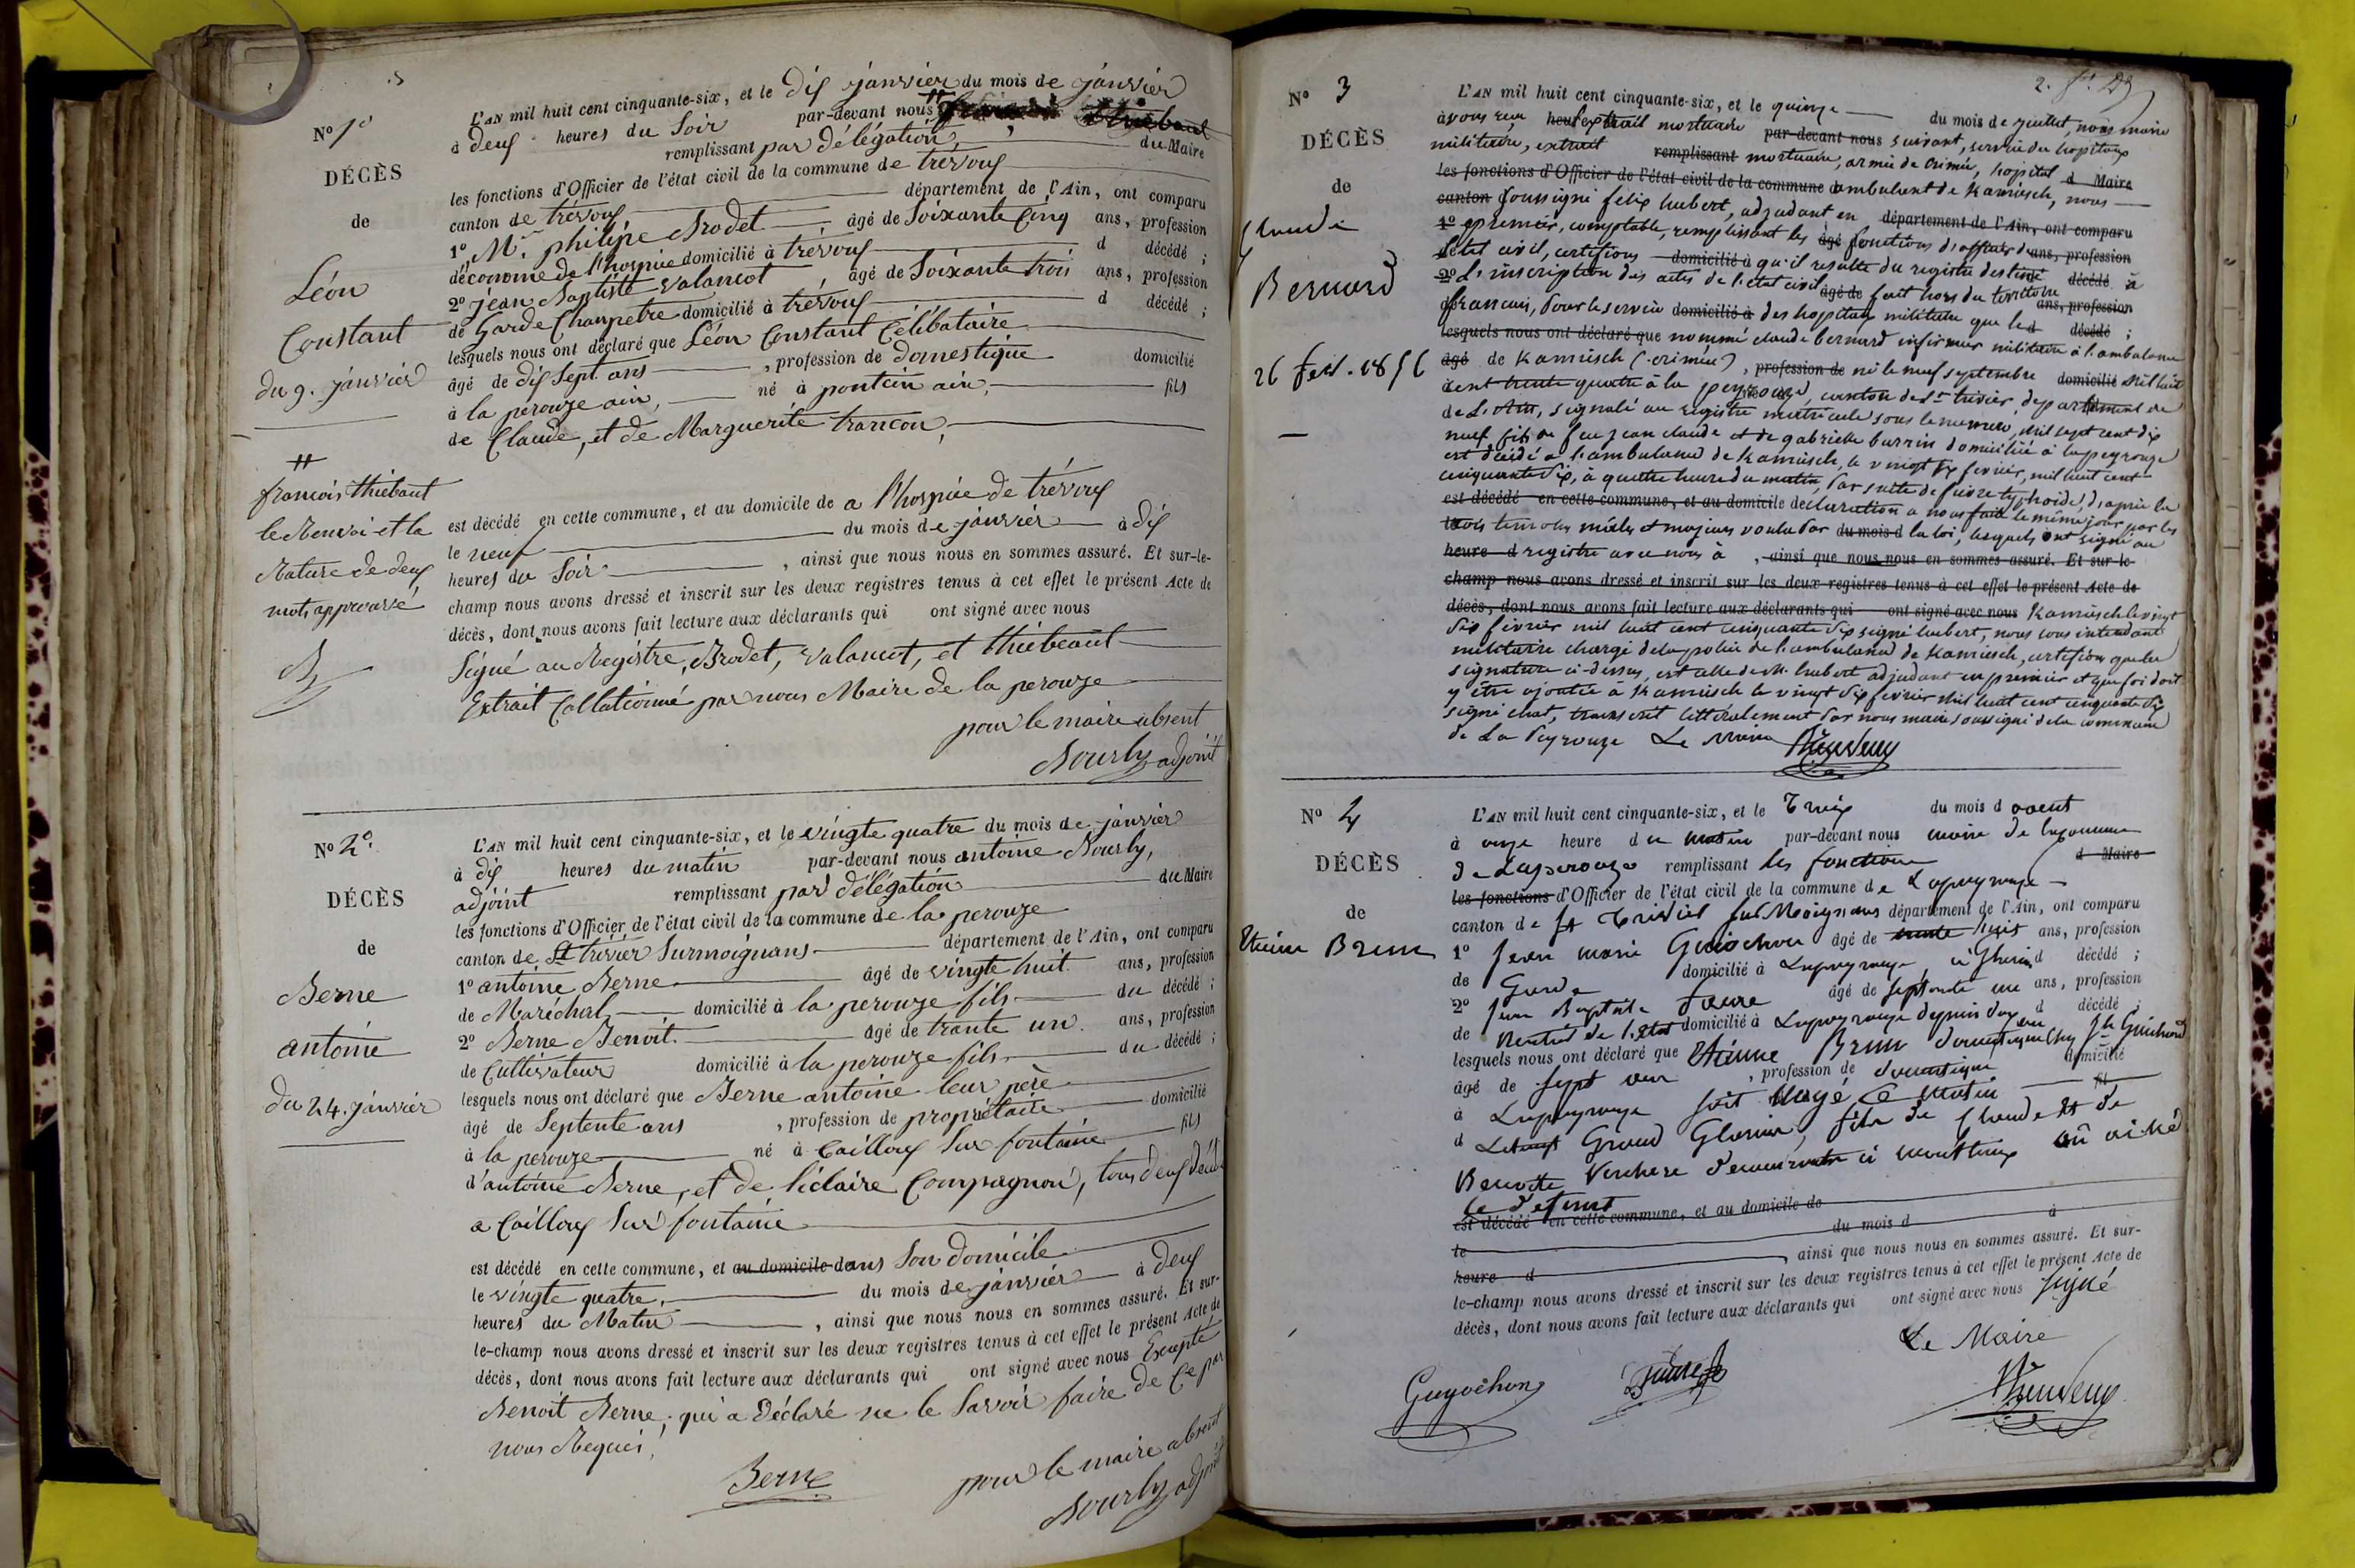 N° 1°
DÉCÈS
de
Léon
Constant
du 9. janvier
françois thiebaut
le Renvoi et la
Rature de deux
mots approuvé
L'AN mil huit cent cinquante-six, et le dix janvier du mois de janvier
à deux heures du Soir par-devant nous
remplissant par délégation, du Maire
les fonctions d'Officier de l'état civil de la commune de trévoux
canton de trévoux département de l'Ain, ont comparu
1° Mr. philipe Brodet âgé de Soixante Cinq ans, profession
d'économe de l'hospice domicilié à trévoux d décédé ;
2° jean Baptiste Valancot, âgé de Soixante trois ans, profession
de Garde Champetre domicilié à trévoux d décédé ;
lesquels nous ont déclaré que Léon Constant Célibataire
âgé de dix Sept. ans, profession de domestique domicilié
à la perouze ain, né à pontcin ain, fils
de Claude, et de Marguerite trancon,
est décédé en cette commune, et au domicile de a l'hospice de trévoux
le neuf du mois de janvier à dix
heures du Soir, ainsi que nous nous en sommes assuré. Et sur-le-
champ nous avons dressé et inscrit sur les deux registres tenus à cet effet le présent Acte de
décès, dont nous avons fait lecture aux déclarants qui ont signé avec nous
Signé au Registre, Brodet, Valancot, et thiebeaut
Extrait Collationné par nous Maire de la perouze
pour le maire absent
Bourly adjoint
N° 2°.
DÉCÈS
de
Berne
antoine
du 24. janvier
L'AN mil huit cent cinquante-six, et le vingte quatre du mois de janvier
à dix heures du matin par-devant nous antoine Bourly,
adjoint remplissant par délégation du Maire
les fonctions d'Officier de l'état civil de la commune de la perouze
canton de St trivier Surmoignans département de l'Ain, ont comparu
1° antoine Berne âgé de vingte huit ans, profession
de Maréchal domicilié à la perouze fils du décédé ;
2° Berne Benoit. âgé de trante un. ans, profession
de Cultivateur domicilié à la perouze fils du décédé ;
lesquels nous ont déclaré que Berne antoine leur père
âgé de Septente ans, profession de propriétaire domicilié
à la perouze né à Cailloux Sur fontaine fils
d'antoine Berne, et de Compagnon, tous deux
a Cailloux Sur fontaine
est décédé en cette commune, et au domicile dans Son domicile
le vingte quatre. du mois de janvier à deux
heures du Matin, ainsi que nous nous en sommes assuré. Et sur-
le-champ nous avons dressé et inscrit sur les deux registres tenus à cet effet le présent Acte de
décès, dont nous avons fait lecture aux déclarants qui ont signé avec nous Excepté
Benoit Berne, qui a Déclaré ne le Savoir faire de Ce par
nous Requis,
Berne
pour le maire absent
Bourly adjoint
N° 3
DÉCÈS
de
Claude
Bernard
26 fevr. 1856
L'AN mil huit cent cinquante-six, et le quinze du mois de juillet, nous maire
avons reçu heure extrait mortuaire par-devant nous suivant, service des hopitaux
militaire, extrait remplissant mortuaire, armée de Crimée, hopital d Maire
les fonctions d'Officier de l'état civil de la commune ambulant de Kamiesch, nous
canton soussigné felix hubert, adjudant en département de l'Ain, ont comparu
1° premier, comptable, remplissant les âgé fonctions d'officier de ans, profession
l'état civil, certifions domicilié à qu'il resulte du registre destiné décédé à
2° L'inscription des actes de l'état civil âgé de fait hors du territoire ans, profession
français, pour le service domicilié à des hopitaux militaire que le d décédé ;
lesquels nous ont déclaré que nommé claude bernard infirmier militaire à l'ambulance
âgé de Kamiesch (crimée), profession de né le neuf septembre domicilié mil huit
cent trente quatre à la peyrouze, canton de St trivier, departement de
de L'Ain, signalé au registre matricule sous le numero, mil sept cent dix
neuf, fils de feu jean claude et de gabrielle burrin domicilié à lapeyrouze
est décédé a l'ambulance de Kamiesch, le vingt six fevrier, mil huit cent
cinquante six, à quatre heure du matin, par suite de fievre typhoide, d'après la
est décédé en cette commune, et au domicile de declaration a nous faite le même jour par les
trois temoins mâles et majeurs voulu par du mois d la loi, lesquels ont signé au
heure d registre avec nous à, ainsi que nous nous en sommes assuré. Et sur-le-
champ nous avons dressé et inscrit sur les deux registres tenus à cet effet le présent Acte de
décès, dont nous avons fait lecture aux déclarants qui ont signé avec nous Kamiesch le vingt
six fevrier mil huit cent cinquante six signé hubert, nous sous intendant
militaire chargé de la police de l'ambulance de Kamiesch, certifions que la
signature ci-dessus, est celle de Mr. hubert adjudant en premier et que foi doit
y être ajoutée à Kamiesch le vingt six fevrier mil huit cent cinquante six
signé chat, transcrit littéralement par nous maire soussigné de la commune
de La Peyrouze Le Maire
N° 4
DÉCÈS
de
Etienne Brun
L'AN mil huit cent cinquante-six, et le Treize du mois d aout
à onze heure du matin par-devant nous maire de la commune
de Laperouze remplissant les fonction d Maire
les fonctions d'Officier de l'état civil de la commune de Lapeyrouze
canton de St Trivier sur Moignans département de l'Ain, ont comparu
1° Jean marie Guiochon âgé de trente huit ans, profession
de Garde domicilié à Lapeyrouze, d décédé ;
2° Jean Baptiste Faure âgé de septante un ans, profession
de Rentier de l'etat domicilié à Lapeyrouze d décédé ;
lesquels nous ont déclaré que Etienne Brun domestique chez Guichard
âgé de sept ans, profession de domestique domicilié
à Lapeyrouze soit Noyé Ce Matin fil
d Grand Glarin, fils de Claude et de
Benoite Verchere demeurant a au né
le defunt
est décédé en cette commune, et au domicile de
le du mois d à
heure d ainsi que nous nous en sommes assuré. Et sur-
le-champ nous avons dressé et inscrit sur les deux registres tenus à cet effet le présent Acte de
décès, dont nous avons fait lecture aux déclarants qui ont signé avec nous signé
Le Maire
Guyochon
Faure